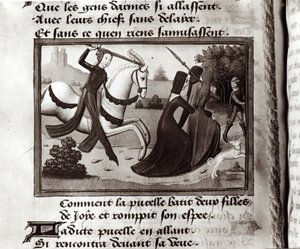 Que les gens darmes si allassent.
Avec leurs chiefz sans delaiz.
Et sans ce quen riens samusassent.
Comment la pucelle batit deux filles
de Joye et rompit son espee.
Ladicte pucelle en allant.
Si rencontra devant sa veue.